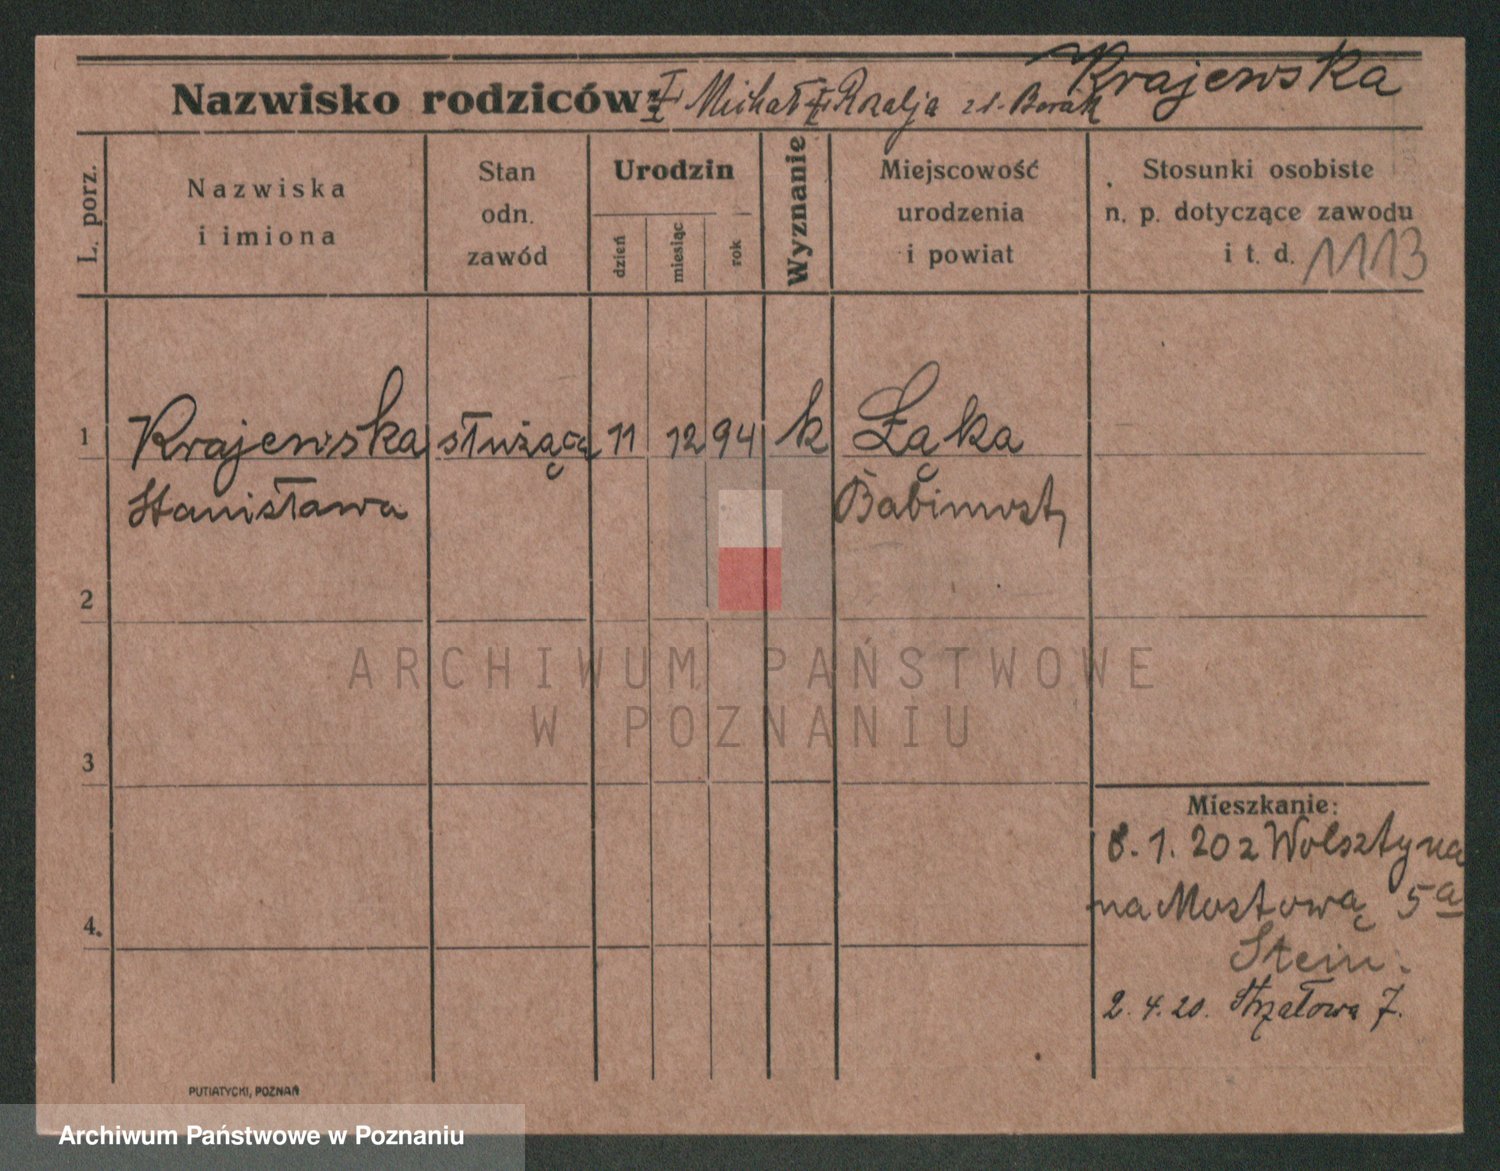 Krajewska
Nazwisko rodziców: Michał Rozalja z d. Borak
L. porz.
Nazwiska i imiona
Stan odn. zawód
Urodzin
dzień
miesiąc
rok
Wyznanie
Miejscowość urodzenia i powiat
Stosunki osobiste
n. p. dotyczące zawodu
i t. d. 1113
1 Krajewska służąca 11 12 94 k Łąka
Stanisława Babimost
2
ARCHIWUM PAŃSTWOWE
W POZNANIU
3
Mieszkanie:
8. 1. 20 z Wolsztyna
na Mostową 5a
Stein.
2. 4. 20. Strzałowa 7.
4.
PUTIATYCKI, POZNAŃ
Archiwum Państwowe w Poznaniu